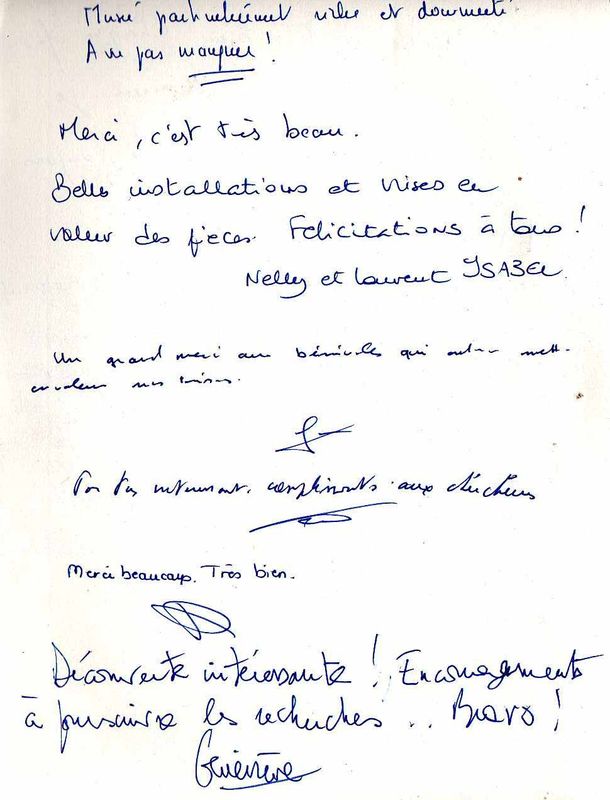 Musé particulièrement riche et documenté
A ne pas manquer !
Merci, c'est très beau.
Belles installations et mises en
valeur des pièces. Felicitations à tous !
Nelly et Laurent YSABEL
Un grand merci aux bénévoles qui mett-
en valeur nos
intéressant. compliments aux chercheurs
Merci beaucoup. Très bien.
Découverte intéressante ! Encouragements
à poursuivre les recherches .. Bravo !
Geneviève